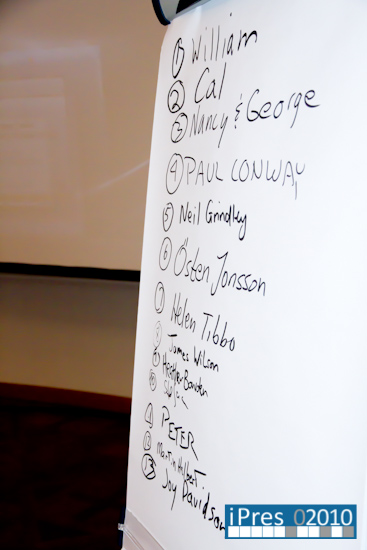 ① William
② Cal
③ Nancy & George
④ PAUL CONWAY
⑤ Neil Grindley
⑥ Östen Jonsson
⑦ Helen Tibbo
⑧ James Wilson
⑨ Heather Bowden
⑩
⑪ PETER
⑫ Martin Halbert
⑬ Joy Davidson
iPres 02010